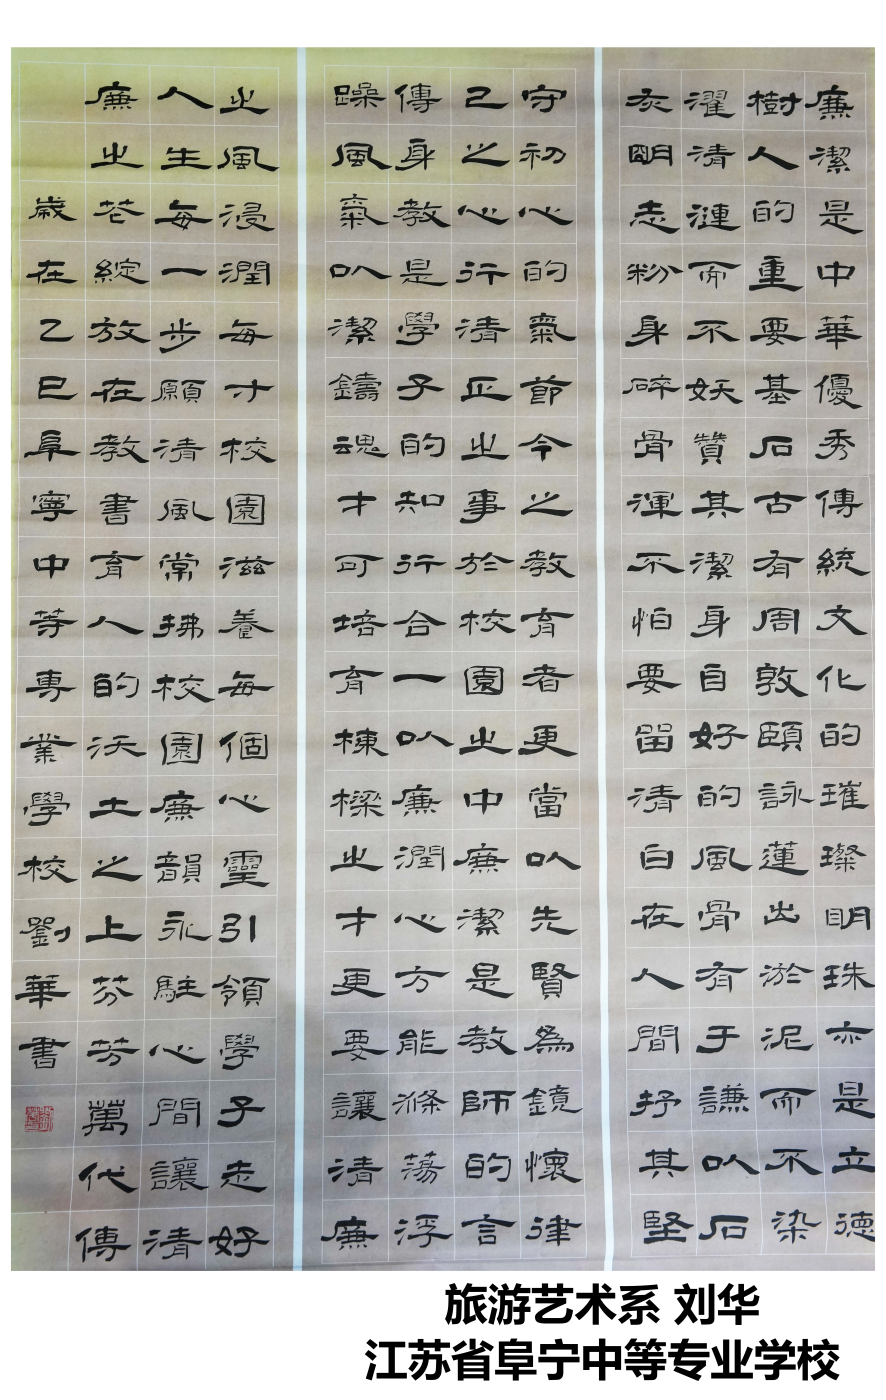 廉潔是中華優秀傳統文化的璀璨明珠亦是立德
樹人的重要基石古有周敦頤詠蓮出淤泥而不染
濯清漣而不妖贊其潔身自好的風骨有于謙以石
灰明志粉身碎骨渾不怕要留清白在人間抒其堅
守初心的氣節今之教育者更當以先賢為鏡懷律
己之心行清正之事於校園之中廉潔是教師的言
傳身教是學子的知行合一以廉潤心方能滌蕩浮
躁風氣以潔鑄魂才可培育棟樑之才更要讓清廉
之風浸潤每寸校園滋養每個心靈引領學子走好
人生每一步願清風常拂校園廉韻永駐心間讓清
廉之花綻放在教書育人的沃土之上芬芳萬代傳
歲在乙巳阜寧中等專業學校劉華書
旅游艺术系 刘华
江苏省阜宁中等专业学校